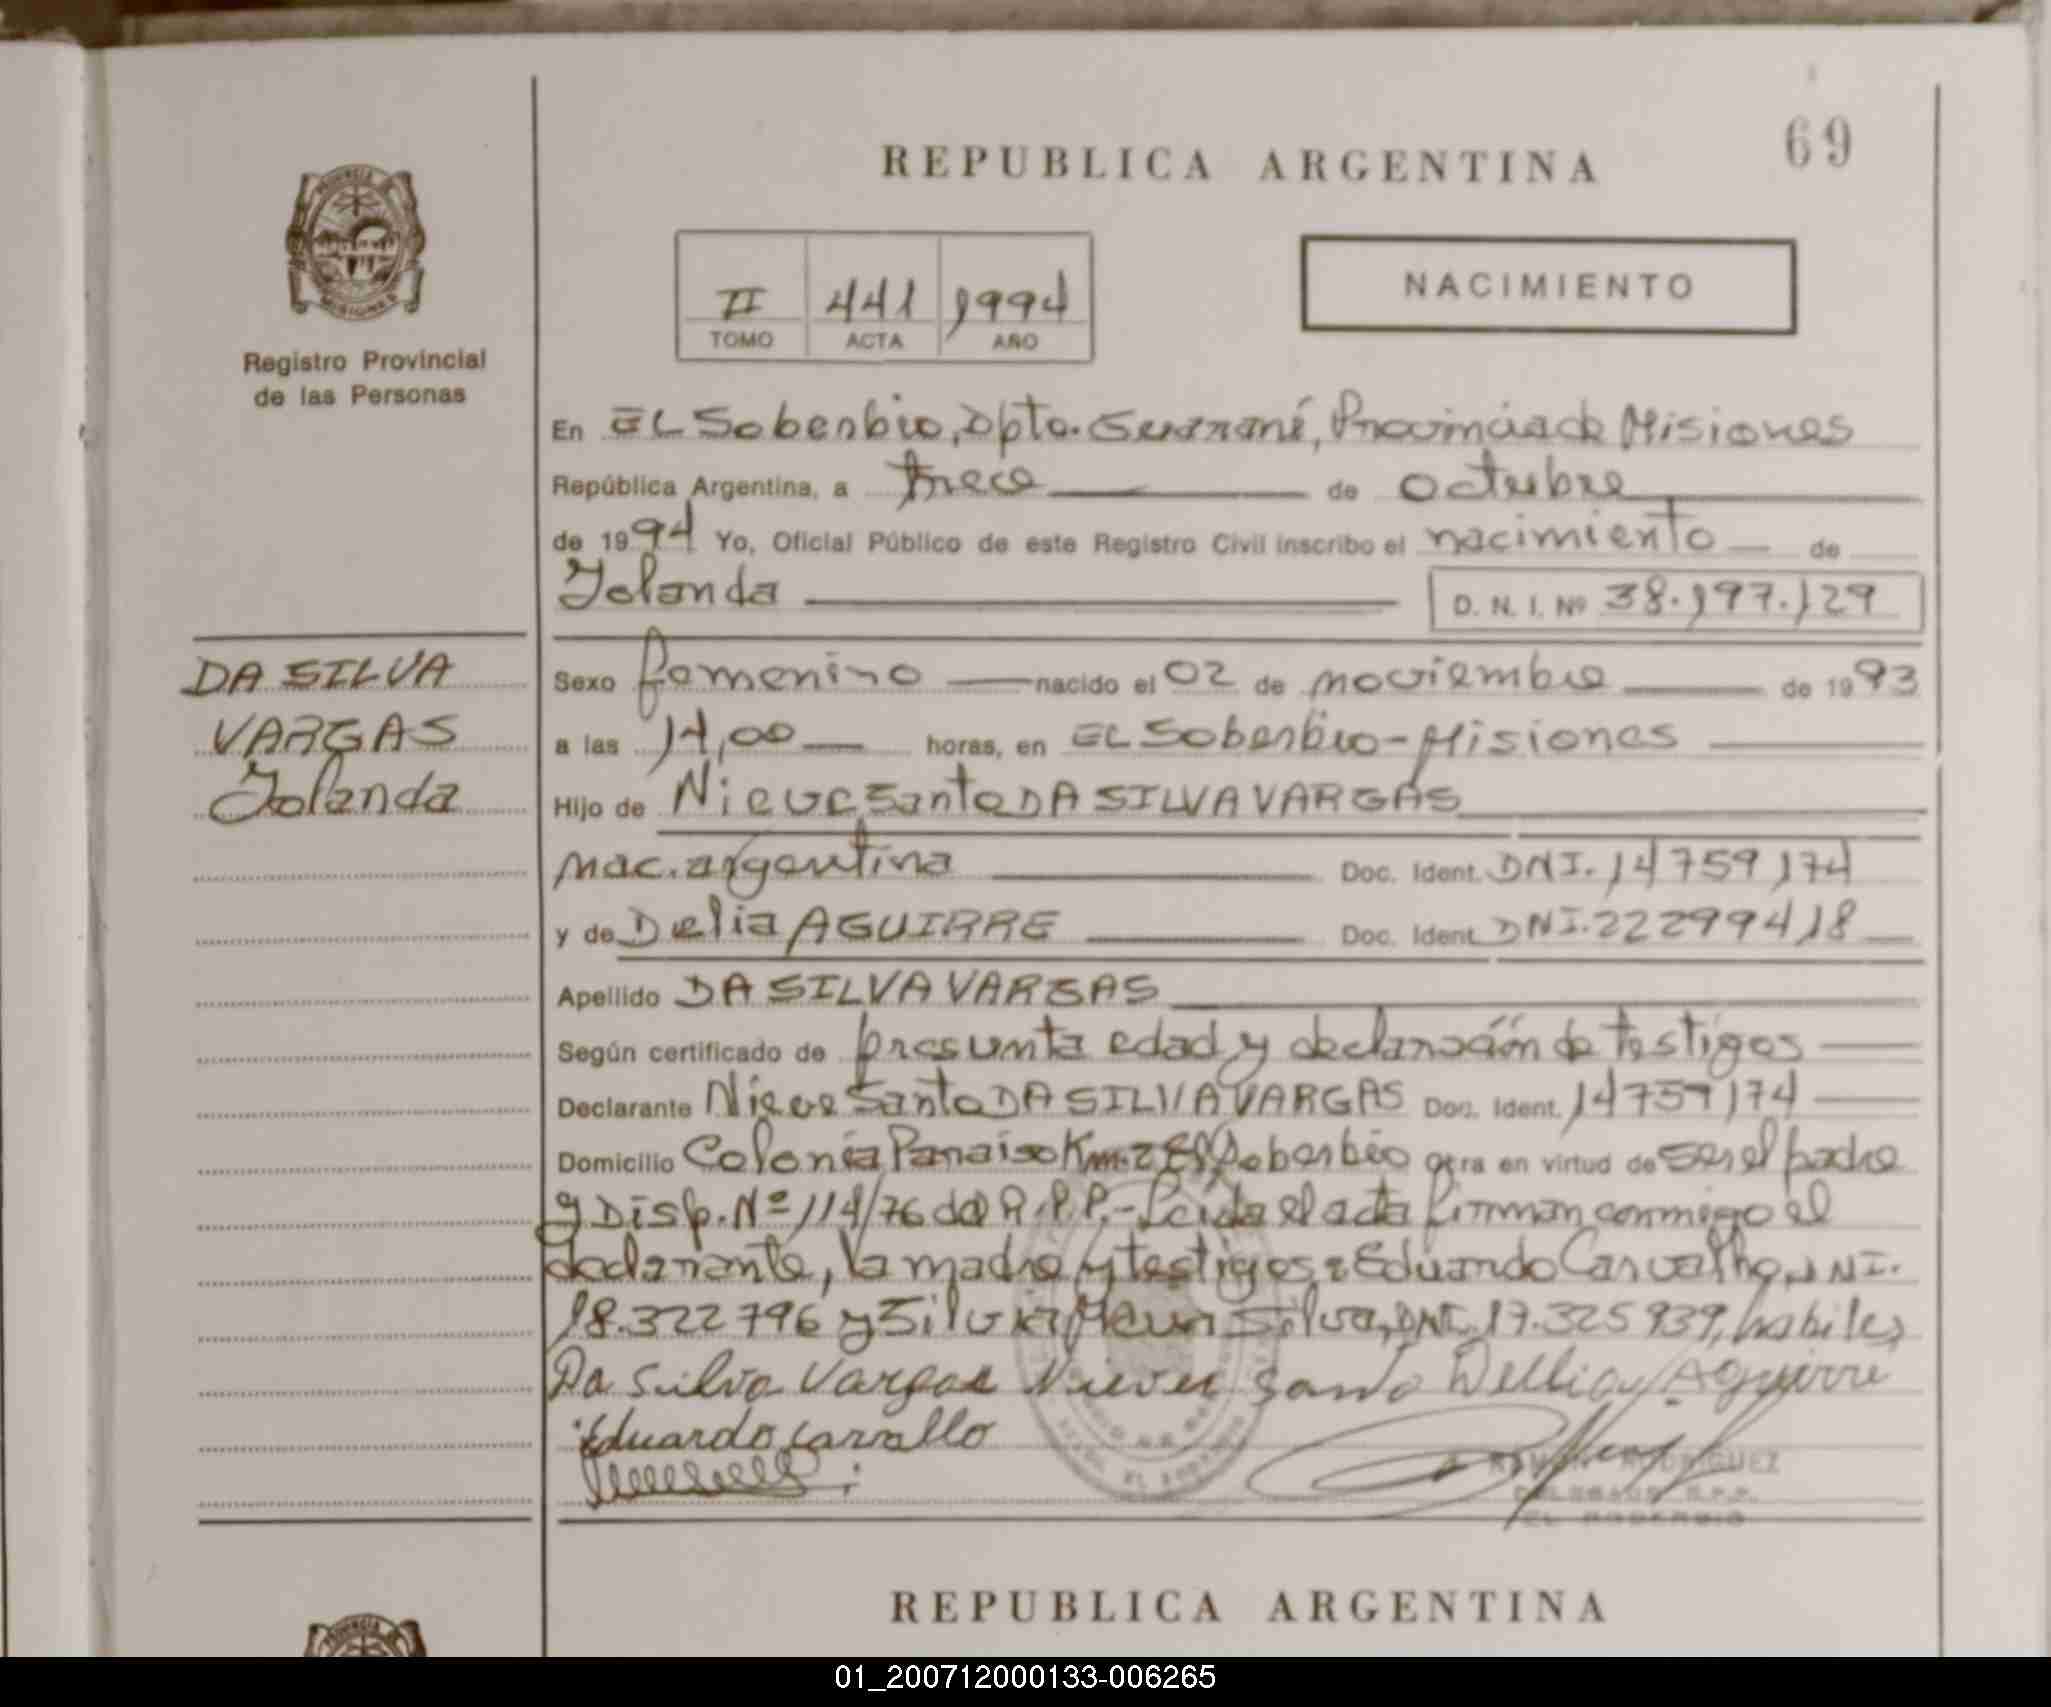 69
REPUBLICA ARGENTINA
NACIMIENTO
II 441 1994
TOMO ACTA AÑO
PROVINCIA DE MISIONES
Registro Provincial
de las Personas
En EL Soberbio, Dpto. Guaraní, Provincia de Misiones
República Argentina, a trece de octubre
de 1994 Yo, Oficial Público de este Registro Civil inscribo el nacimiento de
Yolanda D. N. I. Nº 38.197.129
DA SILVA
VARGAS
Yolanda
Sexo femenino nacido el 02 de noviembre de 1993
a las 14,00 horas, en EL Soberbio - Misiones
Hijo de Nieve Santo DA SILVA VARGAS
nac. argentina Doc. Ident. DNI. 14759174
y de Delia AGUIRRE Doc. Ident. DNI. 22299418
Apellido DA SILVA VARGAS
Según certificado de presunta edad y declaración de testigos
Declarante Nieve Santo DA SILVA VARGAS Doc. Ident. 14759174
Domicilio Colonia Paraiso Km. 2 El Soberbio obra en virtud de ser el padre
y Disp. Nº 114/76 del R.P.P.- Leida el acta firman conmigo el
declarante, la madre y testigos: Eduardo Carvalho, DNI.
18.322796 y Silvia Silva, DNI. 17.325939, habiles
Da Silva Vargas Nieves Santo Dellia Aguirre
Eduardo Carvallo
RAMON RODRIGUEZ
R.P.P.
EL SOBERBIO
REPUBLICA ARGENTINA
01_200712000133-006265